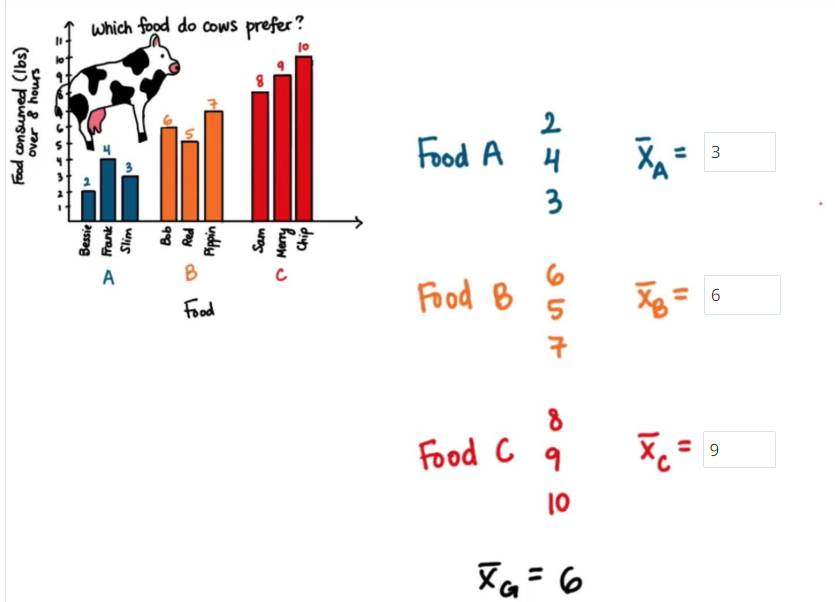 Which food do cows prefer?
Food consumed (lbs)
over 8 hours
11
10
9
8
7
6
5
4
3
2
1
2
4
3
6
5
7
8
9
10
Bessie
Frank
Slim
Bob
Red
Pippin
Sam
Merry
Chip
A
B
C
Food
Food A
2
4
3
X̅A = 3
Food B
6
5
7
X̅B = 6
Food C
8
9
10
X̅C = 9
X̅G = 6